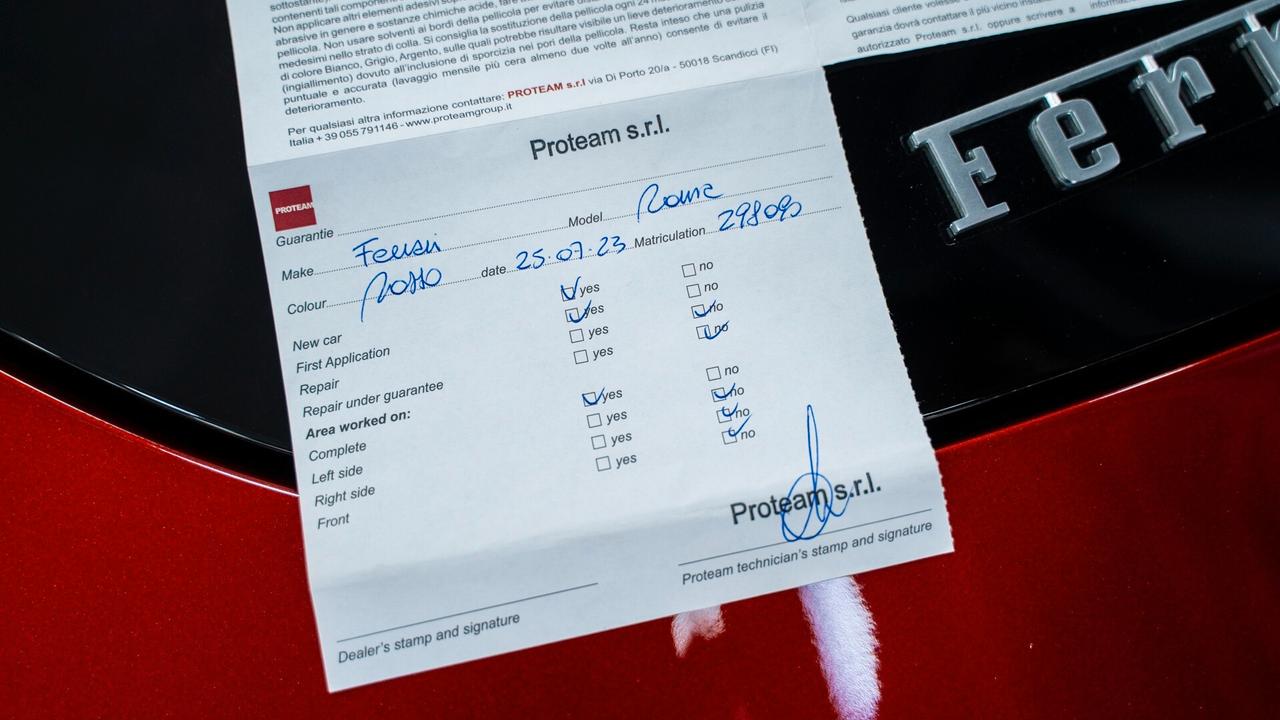 contenuti tali componenti
Non applicare altri elementi adesivi
abrasive in genere e sostanze chimiche acide, fare
pellicola. Non usare solventi ai bordi della pellicola per evitare
medesimi nello strato di colla. Si consiglia la sostituzione della pellicola ogni 24
di colore Bianco, Grigio, Argento, sulle quali potrebbe risultare visibile un lieve deterioramento
(ingiallimento) dovuto all'inclusione di sporcizia nei pori della pellicola. Resta inteso che una pulizia
puntuale e accurata (lavaggio mensile più cera almeno due volte all'anno) consente di evitare il
deterioramento.
Per qualsiasi altra informazione contattare: PROTEAM s.r.l via Di Porto 20/a - 50018 Scandicci (FI)
Italia + 39 055 791146 - www.proteamgroup.it
Qualsiasi cliente
garanzia dovrà contattare il più vicino
autorizzato Proteam s.r.l. oppure scrivere a
Ferr
Proteam s.r.l.
PROTEAM
Guarantie
Make Ferrari Model Roma
Colour Rosso date 25.07.23 Matriculation 298093
New car yes no
First Application yes no
Repair yes no
Repair under guarantee yes no
Area worked on:
Complete yes no
Left side yes no
Right side yes no
Front yes no
Proteam s.r.l.
Dealer's stamp and signature
Proteam technician's stamp and signature